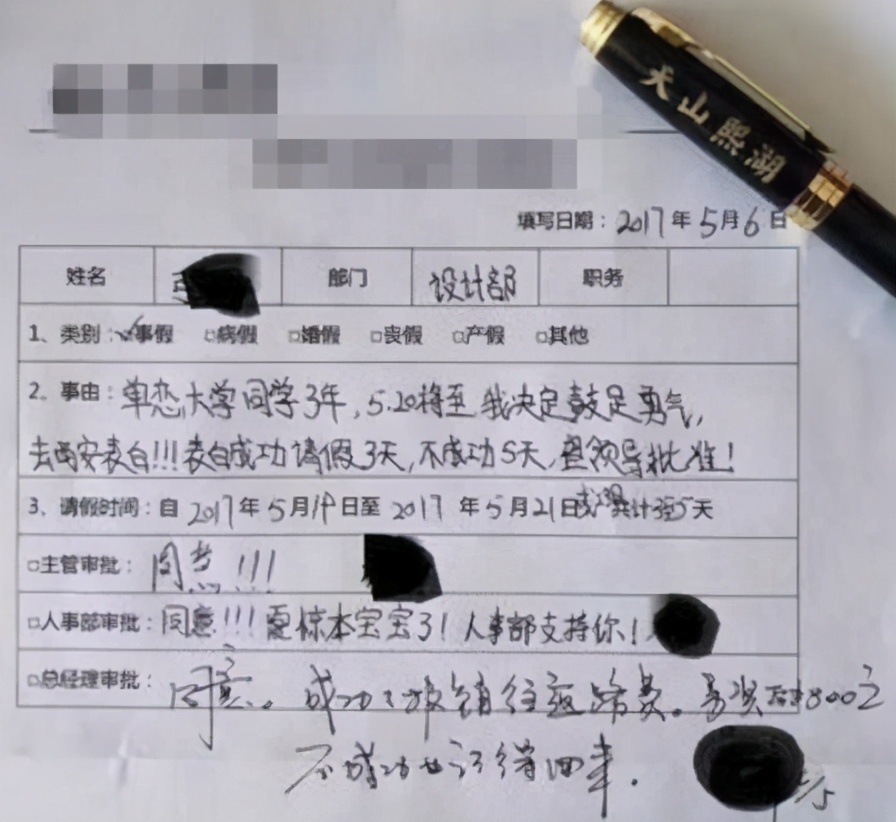 天山熙湖
填写日期：2017年5月6日
姓名 部门 设计部 职务
1、类别：☑事假 □病假 □婚假 □丧假 □产假 □其他
2、事由：单恋大学同学3年，5.20将至我决定鼓足勇气，
去西安表白!!!表白成功请假3天，不成功5天，望领导批准！
3、请假时间：自2017年5月19日至2017年5月21日或23日共计3或5天
□主管审批：同意!!!
□人事部审批：同意!!!真惊本宝宝了！人事部支持你！
□总经理审批：同意。成功了报销往返路费。另奖励800元
不成功也记得回来.